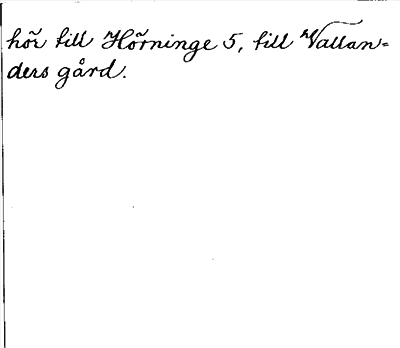 hör till Hörninge 5, till Vallan=
ders gård.